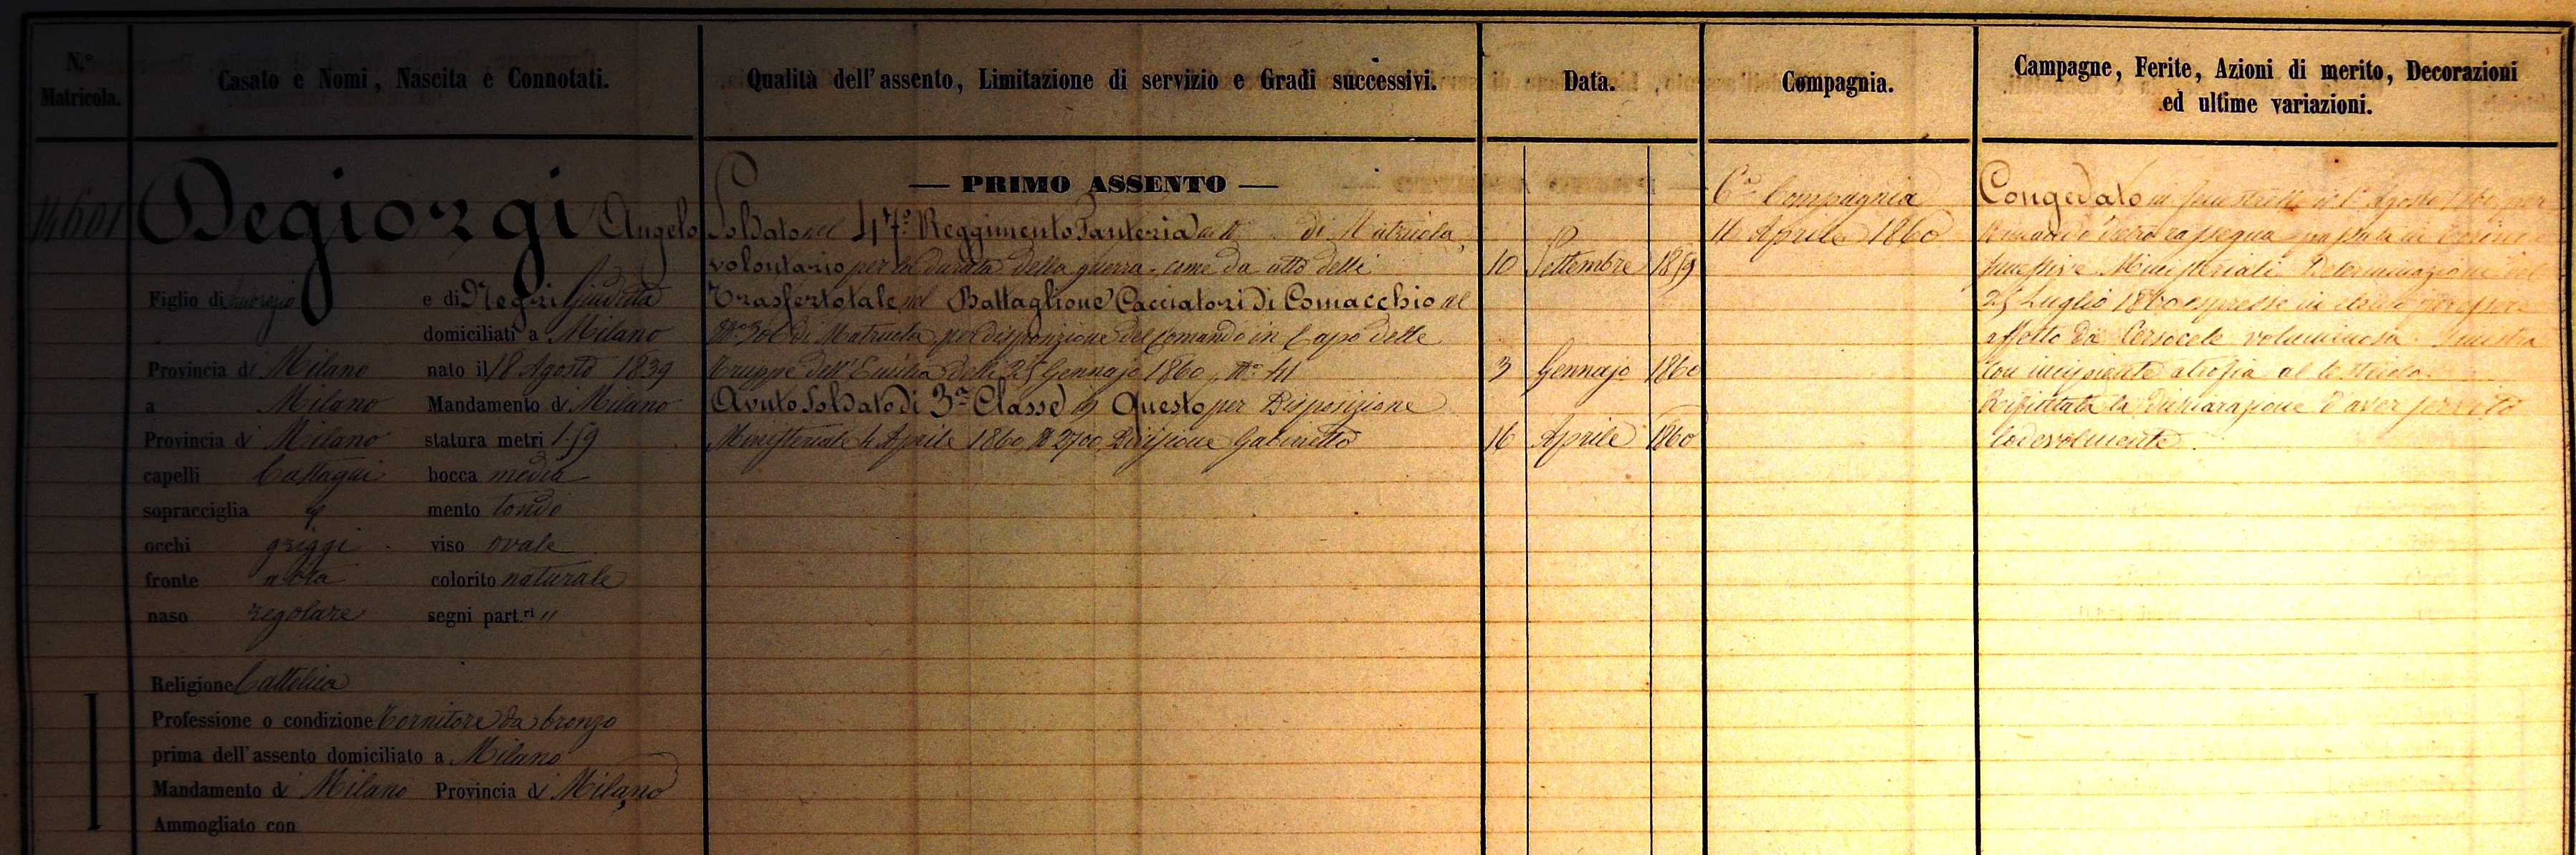 N.º Matricola.
Casato e Nomi, Nascita e Connotati.
Qualità dell'assento, Limitazione di servizio e Gradi successivi.
Data.
Compagnia.
Campagne, Ferite, Azioni di merito, Decorazioni
ed ultime variazioni.
14601
Degiorgi Angelo
Figlio di e di Negri Giuditta
domiciliati a Milano
Provincia di Milano nato il 18 Agosto 1839
a Milano Mandamento di Milano
Provincia di Milano statura metri 1.59
capelli Castagni bocca media
sopracciglia mento tondo
occhi griggi viso ovale
fronte alta colorito naturale
naso regolare segni part.ri "
Religione Cattolica
Professione o condizione Tornitore da bronzo
prima dell'assento domiciliato a Milano
Mandamento di Milano Provincia di Milano
Ammogliato con
— PRIMO ASSENTO —
Soldato nel 47.º Reggimento Fanteria al Nº di Matricola,
volontario per la durata della guerra, come da atto delli 10 Settembre 1859
Trasferto tale nel Battaglione Cacciatori di Comacchio al
Nº 306 di Matricola per disposizione del Comando in Capo delle
Truppe dell'Emilia delli 25 Gennajo 1860, Nº 41 3 Gennajo 1860
Avuto Soldato di 3ª Classe in Questo per Disposizione
Ministeriale 4 Aprile 1860, N 2700, Divisione Gabinetto 16 Aprile 1860
6ª Compagnia
11 Aprile 1860
Congedato in il 1º Agosto 1860, per
rassegna passata in Torino
Ministeriale Determinazione del
25 Luglio 1860 espresse in
affetto da Cersocele voluminosa sinistra
con incipiente atrofia al testicolo.
Rifiutata la Dichiarazione d'aver servito
lodevolmente.